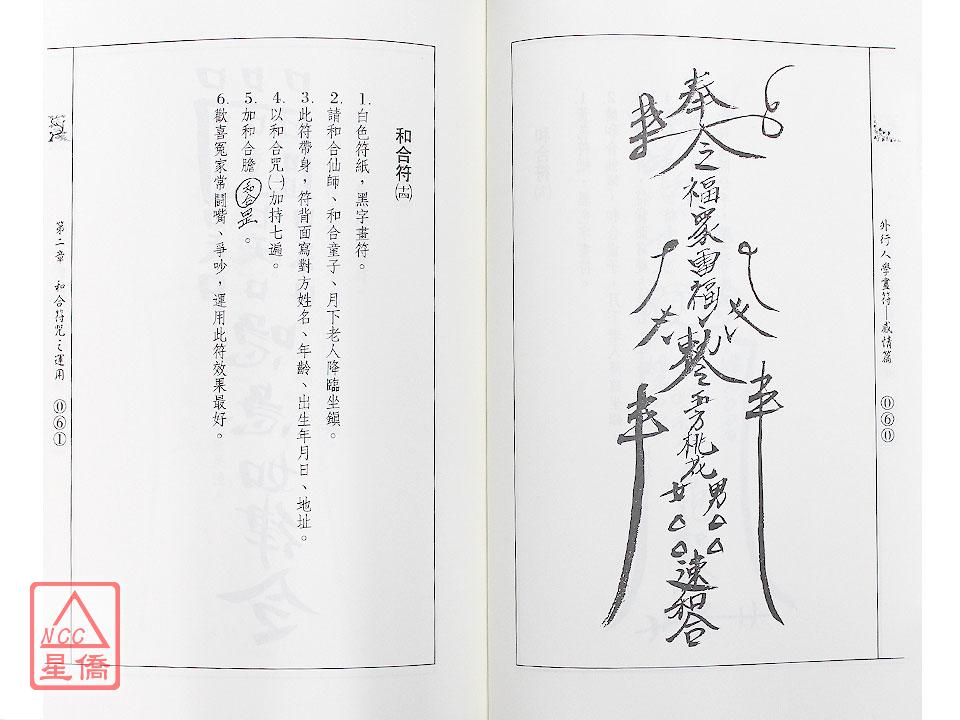 外行人學畫符─感情篇
０６０
奉令
福眾雷福
桃花
男
女
速和合
和合符㈭
1.白色符紙，黑字畫符。
2.請和合仙師、和合童子、月下老人降臨坐鎮。
3.此符帶身，符背面寫對方姓名、年齡、出生年月日、地址。
4.以和合咒㈠加持七遍。
5.加和合膽和合罡。
6.歡喜冤家常鬪嘴、爭吵，運用此符效果最好。
第二章 和合符咒之運用
０６１
NCC
星僑